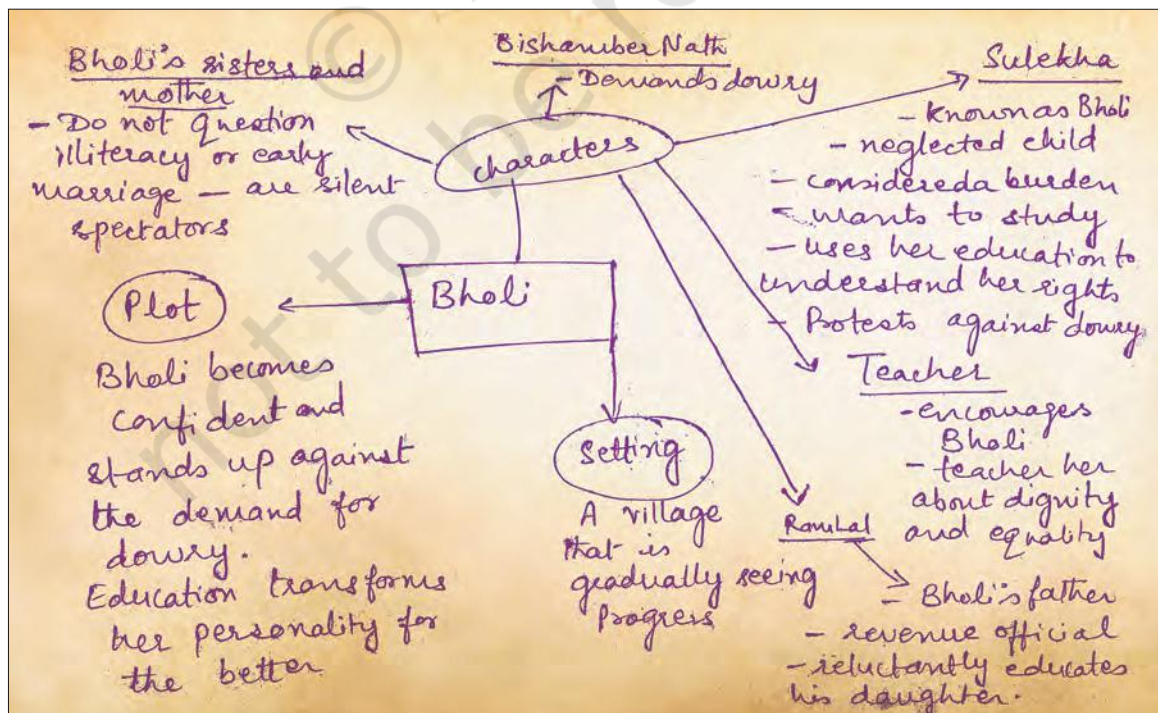 Bholi's sisters and
mother
- Do not question
illiteracy or early
marriage - are silent
spectators
Bishamber Nath
- Demands dowry
Sulekha
- known as Bholi
- neglected child
- considered a burden
- wants to study
- uses her education to
understand her rights
- Protests against dowry
characters
Bholi
Plot
Bholi becomes
confident and
stands up against
the demand for
dowry.
Education transforms
her personality for
the better
Setting
A village
that is
gradually seeing
Progress
Teacher
- encourages
Bholi
- teacher her
about dignity
and equality
Ramlal
- Bholi's father
- revenue official
- reluctantly educates
his daughter.
© not to be re